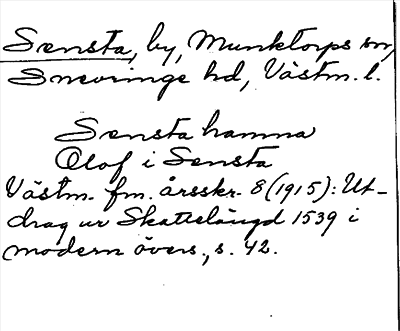 Sensta, by, Munktorps sn,
Snevringe hd, Västm. l.
Sensta hamna
Olof i Sensta
Västm. fm. årsskr. 8 (1915): Ut-
drag ur Skattelängd 1539 i
modern övers., s. 42.